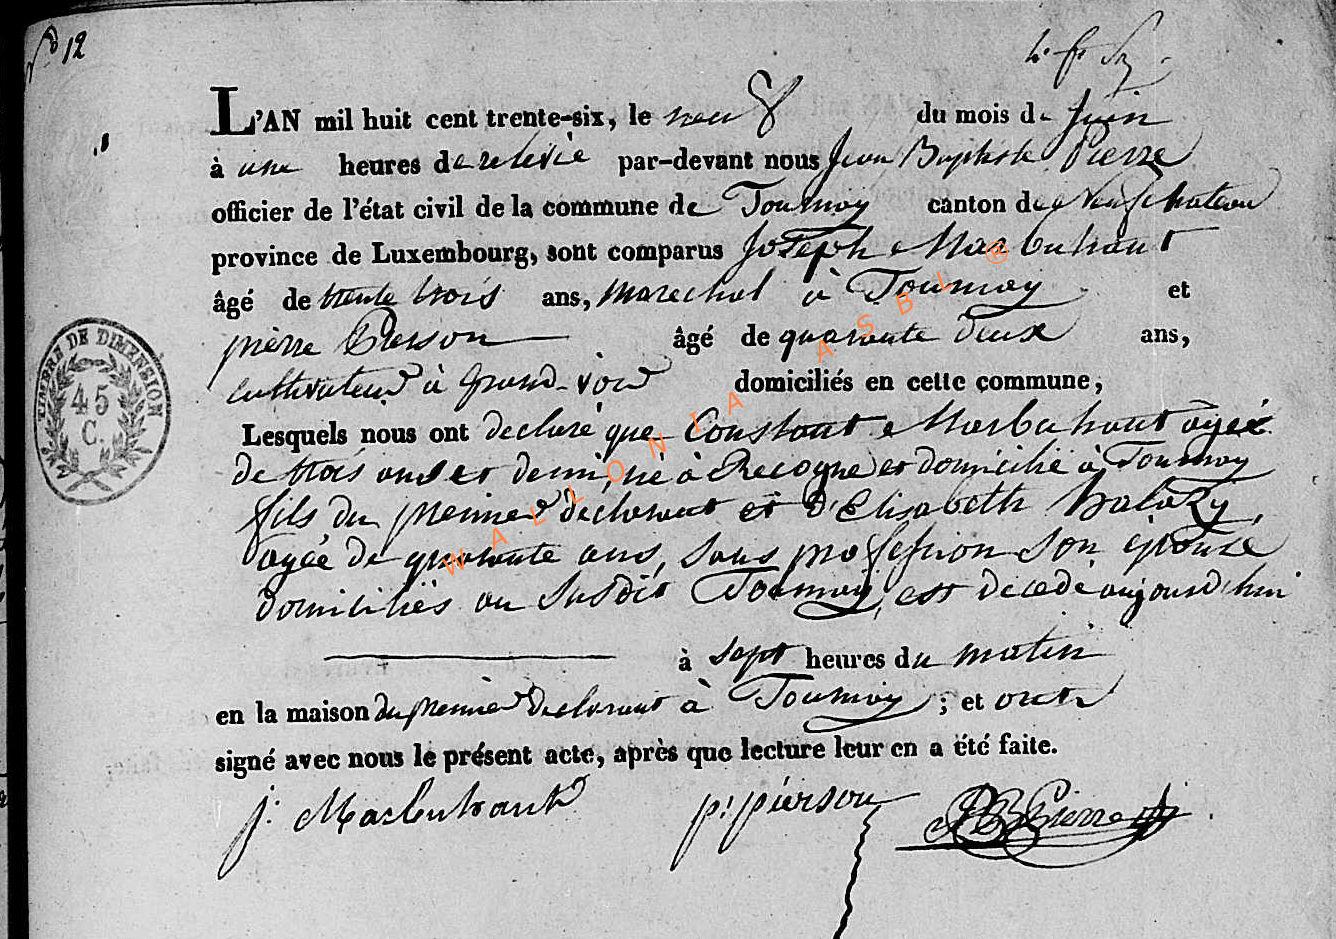 N° 12
L'AN mil huit cent trente-six, le neuf du mois de Juin
à une heures de relevée par-devant nous Jean Baptiste Pierre
officier de l'état civil de la commune de Tournay canton de Neufchateau
province de Luxembourg, sont comparus Joseph Marbuhant
âgé de trente trois ans, marechal à Tournay et
pierre Pierson âgé de quarante deux ans,
cultivateur à grand-voir domiciliés en cette commune,
Lesquels nous ont declaré que Constant Marbuhant agé
de trois ans et demi, né à Recogne et domicilié à Tournay
fils du premier declarant et d'Elisabeth Balazy,
agée de quarante ans, sans profession son épouse
domiciliés au susdit Tournay, est decedé aujourd'hui
à sept heures du matin
en la maison du premier declarant à Tournay ; et ont
signé avec nous le présent acte, après que lecture leur en a été faite.
j. Marbuhant p. pierson JB Pierre
TIMBRE DE DIMENSION
45
C.
WALLONIA ASBL ®